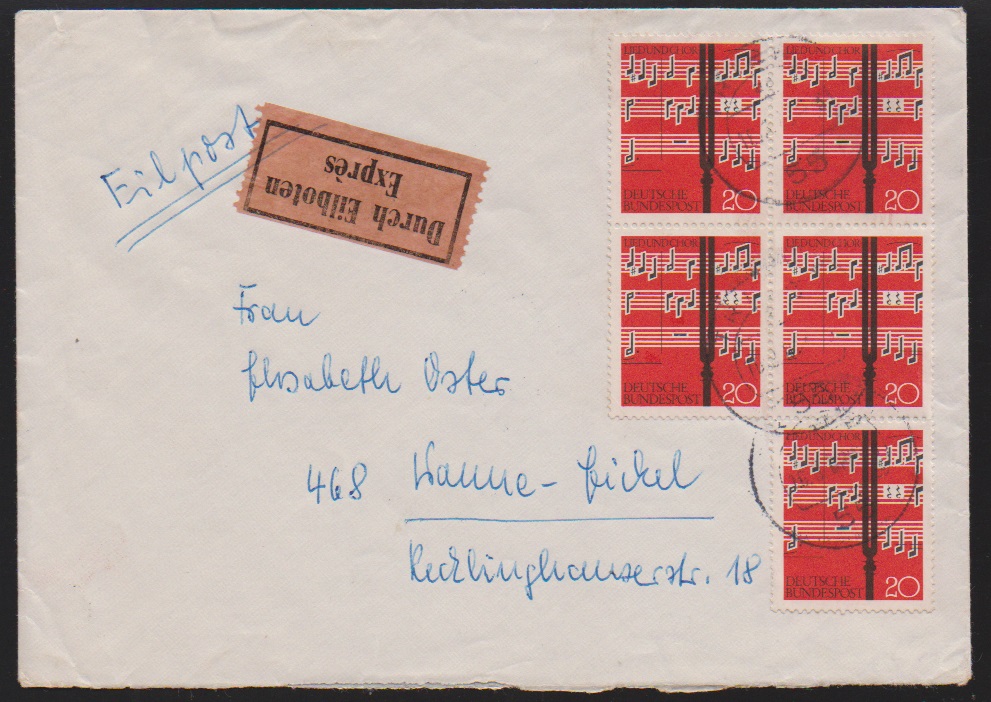 Eilpost
Durch Eilboten
Exprès
Frau
Elisabeth Oster
468 Wanne-Eickel
Recklinghauserstr. 18
LIED UND CHOR
DEUTSCHE
BUNDESPOST 20
LIED UND CHOR
DEUTSCHE
BUNDESPOST 20
LIED UND CHOR
DEUTSCHE
BUNDESPOST 20
LIED UND CHOR
DEUTSCHE
BUNDESPOST 20
LIED UND CHOR
DEUTSCHE
BUNDESPOST 20